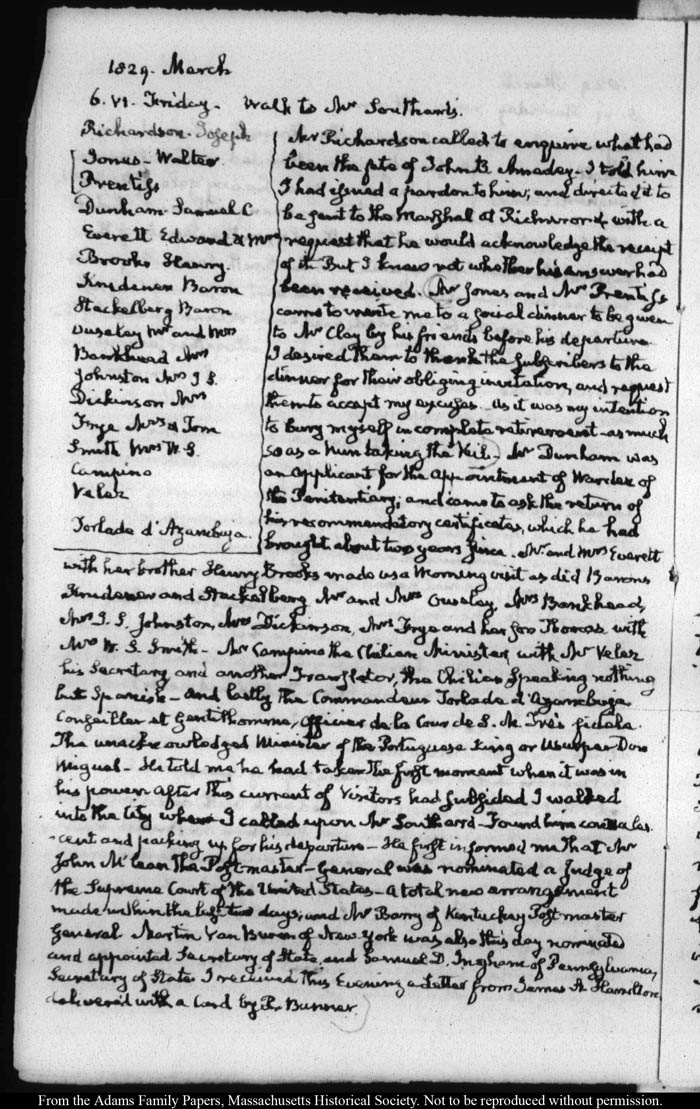 1829. March
6. VI. Friday. Walk to Mr Southard's.
Richardson. Joseph
Jones - Walter
Prentiss
Dunham. Samuel C
Everett Edward & Mrs
Brooks Henry.
Krudener Baron
Stackelberg Baron
Ouseley Mr and Mrs
Bankhead Mrs
Johnston Mrs J. S.
Dickinson Mrs
Frye Mrs & Tom
Smith Mrs W. S.
Campino
Velez
Torlade d'Azambuja.
Mr Richardson called to enquire what had
been the fate of John B. Amaday. I told him
I had issued a pardon to him, and directed it to
be sent to the Marshal at Richmond with a
request that he would acknowledge the receipt
of it. But I knew not whether his answer had
been received. Mr Jones and Mr Prentiss
came to invite me to a social dinner to be given
to Mr Clay by his friends before his departure
I desired them to thank the Subscribers to the
dinner for their obliging invitation, and request
them to accept my excuses. As it was my intention
to bury myself in complete retirement as much
so as a Nun taking the Veil. Mr Dunham was
an applicant for the appointment of Warden of
the Penitentiary; and came to ask the return of
his recommendatory certificates, which he had
brought about two years since. Mr and Mrs Everett
with her brother Henry Brooks made us a Morning visit as did Barons
Krudener and Stackelberg Mr and Mrs Ouseley, Mrs Bankhead,
Mrs J. S. Johnston, Mrs Dickinson, Mrs Frye and her son Thomas with
Mrs W. S. Smith - Mr Campino the Chilian Minister with Mr Velez
his Secretary and another Translator, the Chilian speaking nothing
but Spanish - and lastly the Commandeur Torlade d'Azambuja
Conseiller et Gentilhomme, Officier de la Cour de S. M. Très fidele.
The unacknowledged Minister of the Portuguese King or Usurper Don
Miguel - He told me he had taken the first moment when it was in
his power. After this current of Visitors had subsided I walked
into the City where I called upon Mr Southard - Found him convales-
-cent and packing up for his departure - He first informed me that Mr
John McLean the Postmaster-General was nominated a Judge of
the Supreme Court of the United States - a total new arrangement
made within the last two days; and Mr Barry of Kentucky Postmaster
General Martin Van Buren of New York was also this day nominated
and appointed Secretary of State, and Samuel D. Ingham of Pennsylvania,
Secretary of State I received this Evening a Letter from James A. Hamilton
delivered with a Card by R. Bunner.
From the Adams Family Papers, Massachusetts Historical Society. Not to be reproduced without permission.